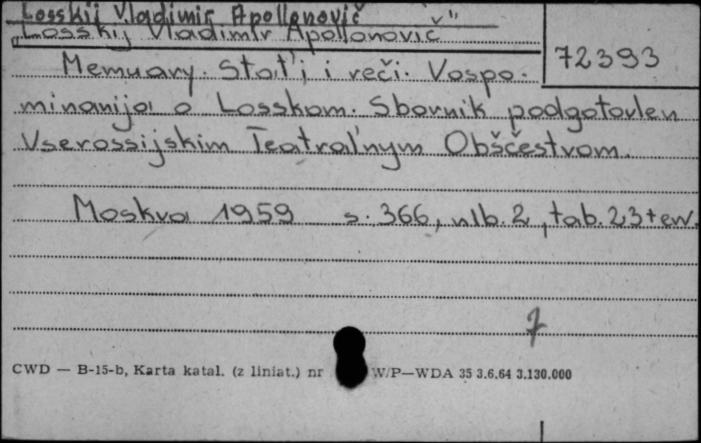 Losskij Vladimir Apollonovič
"Losskij Vladimir Apollonovič"
72393
Memuary. Stat'i i reči. Vospo-
minanija o Losskom. Sbornik podgotovlen
Vserossijskim Teatral'nym Obščestvom.
Moskva 1959 s. 366, nlb. 2, tab. 23+err.
7
CWD — B-15-b, Karta katal. (z liniat.) nr W/P—WDA 35 3.6.64 3.130.000